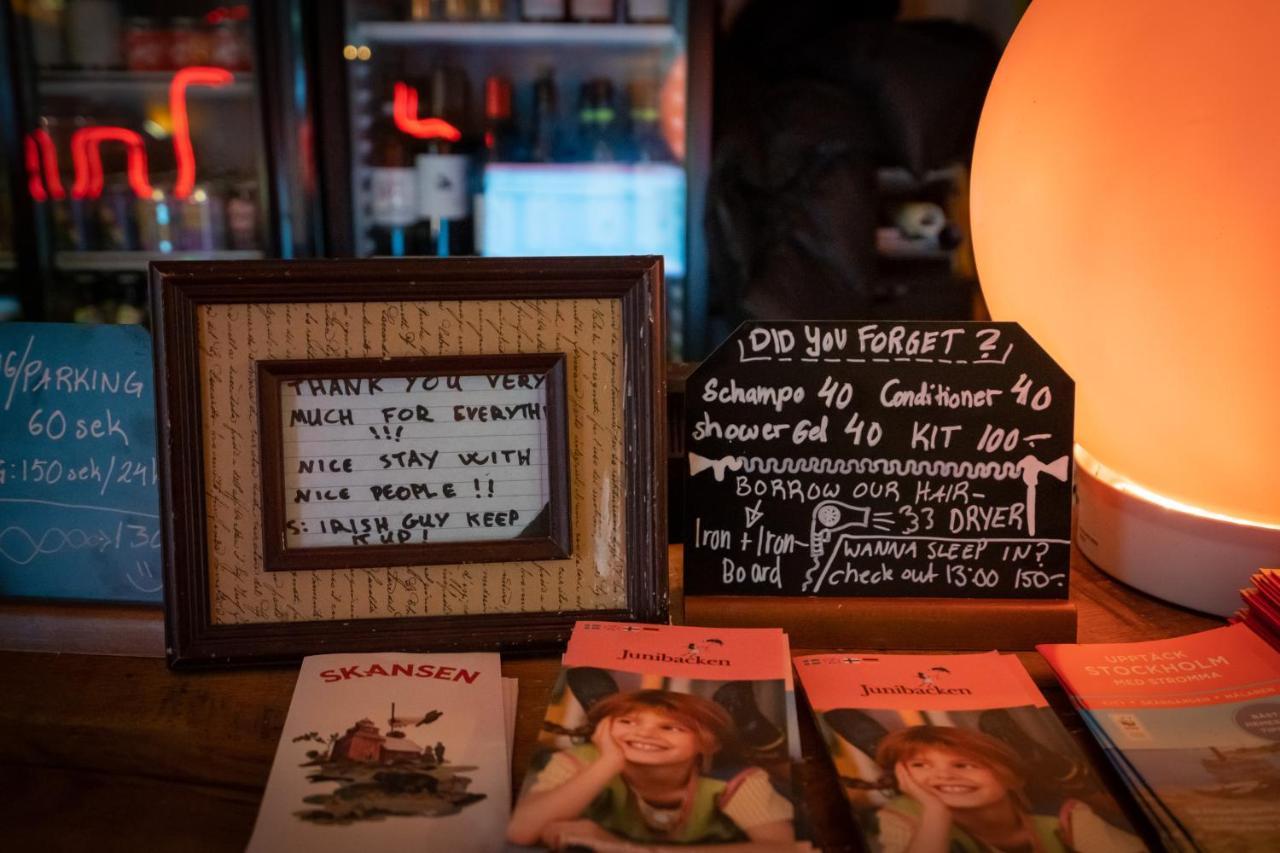 G/PARKING
60 sek
G:150sek/24h
THANK YOU VERY
MUCH FOR EVERYTH
!!!
NICE STAY WITH
NICE PEOPLE !!
S: IRISH GUY KEEP
IT UP!
DID YOU FORGET ?
Schampo 40 Conditioner 40
shower Gel 40 KIT 100:-
BORROW OUR HAIR-
DRYER
Iron + Iron-
Board
WANNA SLEEP IN?
check out 13:00 150:-
SKANSEN
Junibacken
Junibacken
UPPTÄCK
STOCKHOLM
MED STROMMA